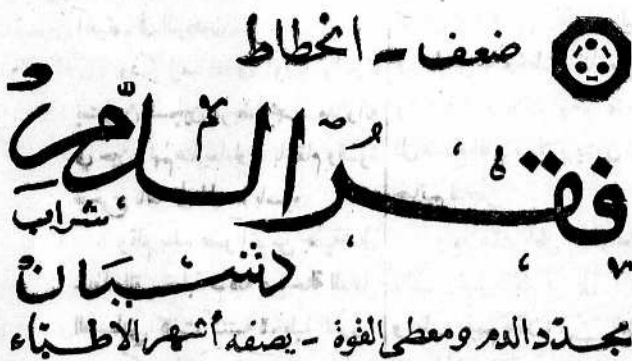 ضعف - انحطاط
فقرُ الدَّمِ
شراب
دشبيان
مجدّد الدم ومعطى القوة - يصفه أشهر الاطبّاء